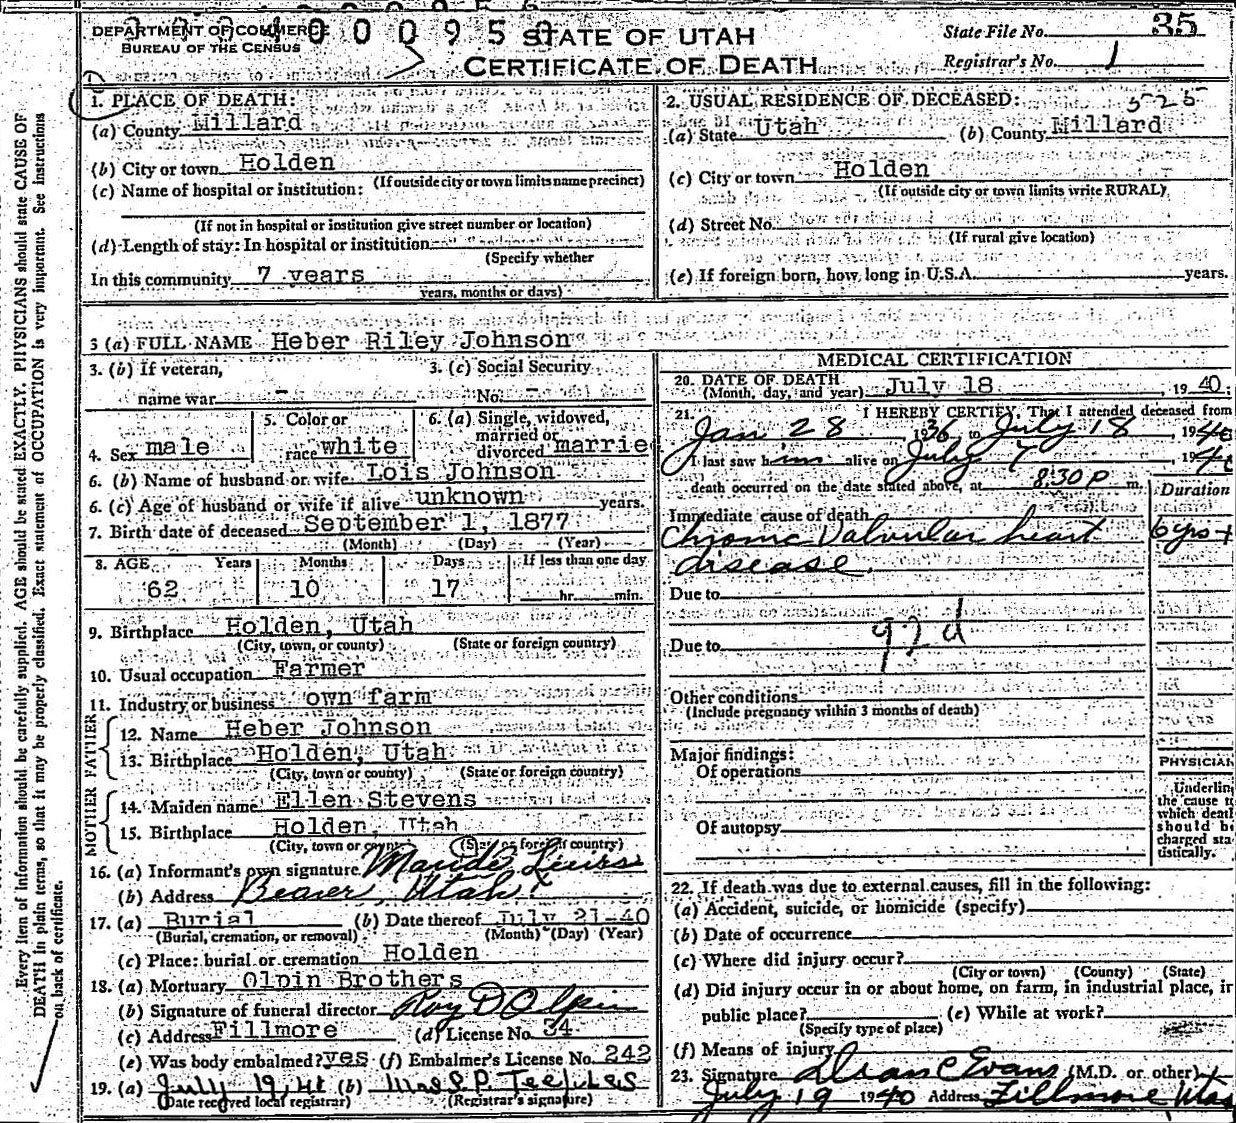 DEPARTMENT OF COMMERCE
BUREAU OF THE CENSUS
STATE OF UTAH
CERTIFICATE OF DEATH
State File No. 35
Registrar's No. 1
1. PLACE OF DEATH:
(a) County Millard
(b) City or town Holden
(If outside city or town limits name precinct)
(c) Name of hospital or institution:
(If not in hospital or institution give street number or location)
(d) Length of stay: In hospital or institution
(Specify whether
In this community 7 years
years, months or days)
2. USUAL RESIDENCE OF DECEASED: 525
(a) State Utah (b) County Millard
(c) City or town Holden
(If outside city or town limits write RURAL)
(d) Street No.
(If rural give location)
(e) If foreign born, how long in U.S.A. years.
3 (a) FULL NAME Heber Riley Johnson
3. (b) If veteran, 3. (c) Social Security
name war - No. -
4. Sex male
5. Color or
race white
6. (a) Single, widowed,
married or
divorced marrie
6. (b) Name of husband or wife Lois Johnson
6. (c) Age of husband or wife if alive unknown years.
7. Birth date of deceased September 1, 1877
(Month) (Day) (Year)
8. AGE Years Months Days If less than one day
62 10 17 hr. min.
9. Birthplace Holden, Utah
(City, town, or county) (State or foreign country)
10. Usual occupation Farmer
11. Industry or business own farm
FATHER
12. Name Heber Johnson
13. Birthplace Holden, Utah
(City, town or county) (State or foreign country)
MOTHER
14. Maiden name Ellen Stevens
15. Birthplace Holden, Utah
(City, town or county) (State or foreign country)
16. (a) Informant's own signature Maude
(b) Address Beaver, Utah
17. (a) Burial (b) Date thereof July 21-40
(Burial, cremation, or removal) (Month) (Day) (Year)
(c) Place: burial or cremation Holden
18. (a) Mortuary Olpin Brothers
(b) Signature of funeral director Roy D Olpin
(c) Address Fillmore (d) License No. 34
(e) Was body embalmed? yes (f) Embalmer's License No. 242
19. (a) July 19, 41 (b) Mrs S. P. Teeples
(Date received local registrar) (Registrar's signature)
MEDICAL CERTIFICATION
20. DATE OF DEATH
(Month, day, and year) July 18, 1940;
21. I HEREBY CERTIFY, That I attended deceased from
Jan 28 1936 to July 18 1940
I last saw him alive on July 7 1940
death occurred on the date stated above, at 8:30 P m.
Duration
Immediate cause of death
Chronic Valvular heart 6 yrs +
disease.
Due to
92d
Due to
Other conditions
(Include pregnancy within 3 months of death)
Major findings:
Of operations
Of autopsy
PHYSICIAN
Underlin
the cause to
which death
should be
charged sta
tistically.
22. If death was due to external causes, fill in the following:
(a) Accident, suicide, or homicide (specify)
(b) Date of occurrence
(c) Where did injury occur?
(City or town) (County) (State)
(d) Did injury occur in or about home, on farm, in industrial place, in
public place? (e) While at work?
(Specify type of place)
(f) Means of injury
23. Signature Dean C Evans (M.D. or other)
July 19 1940 Address Fillmore Utah
Every item of information should be carefully supplied. AGE should be stated EXACTLY. PHYSICIANS should state CAUSE OF
DEATH in plain terms, so that it may be properly classified. Exact statement of OCCUPATION is very important. See instructions
on back of certificate.